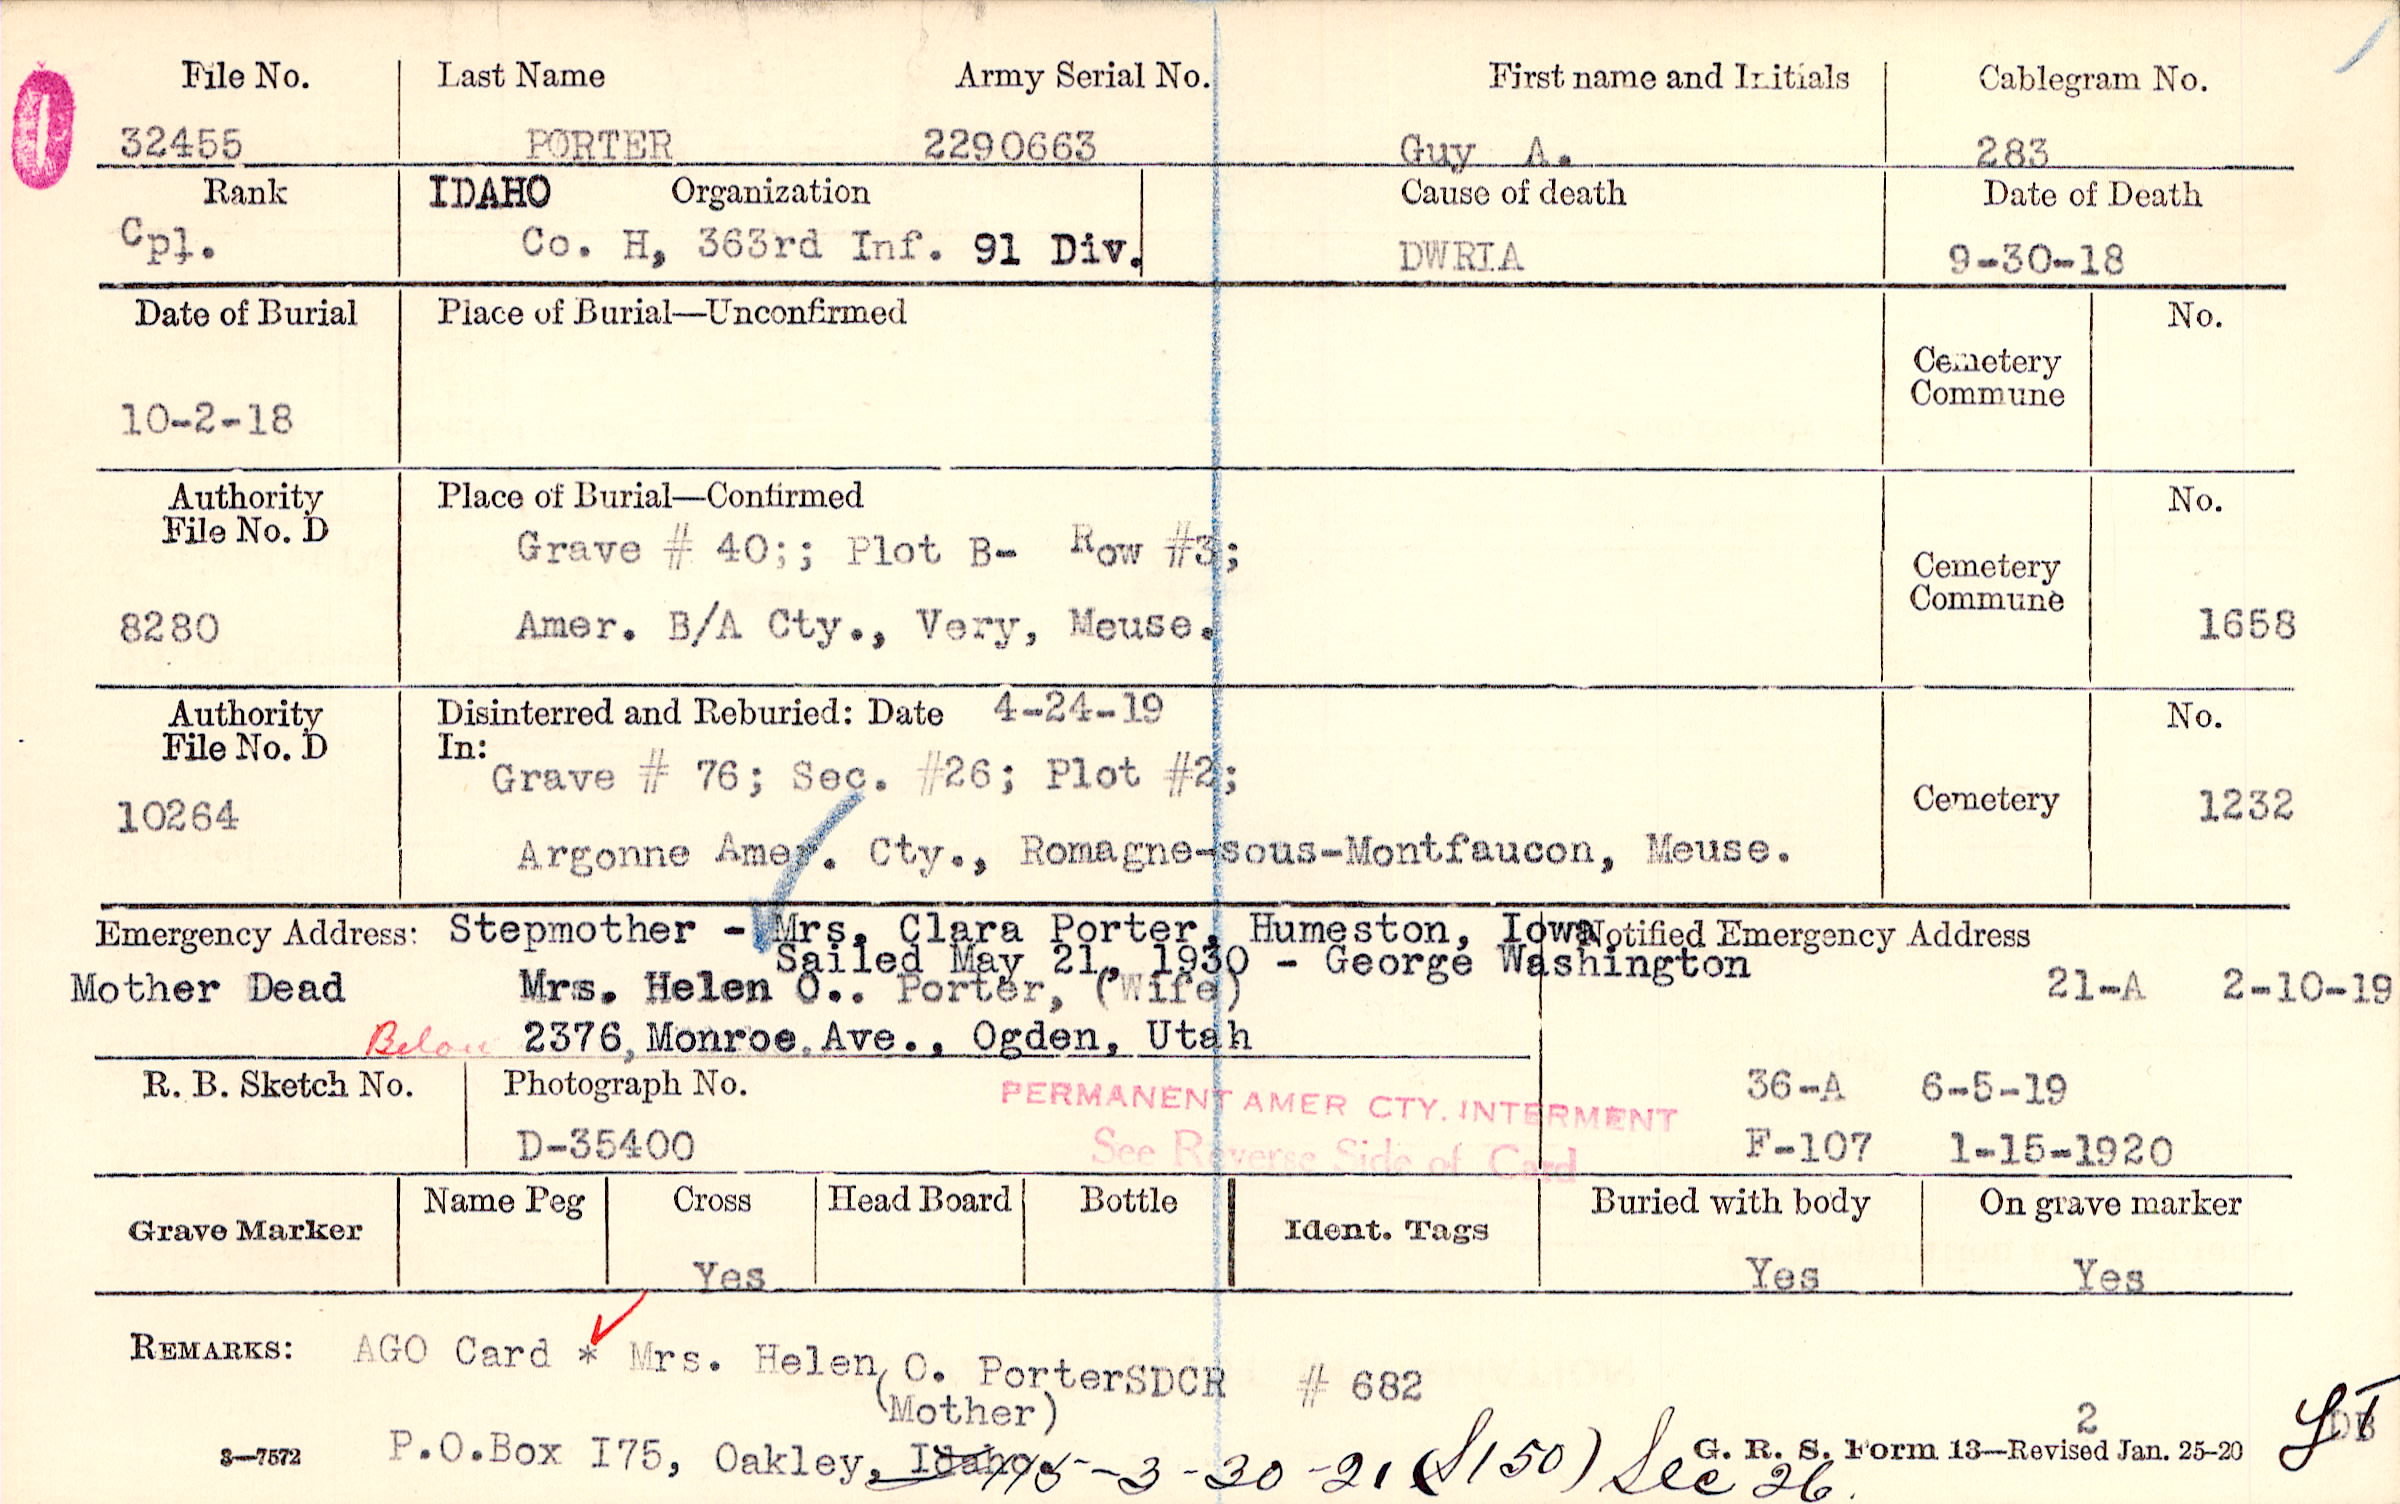 File No. Last Name Army Serial No. First name and Initials Cablegram No.
32455 PORTER 2290663 Guy A. 283
Rank IDAHO Organization Cause of death Date of Death
Cpl. Co. H, 363rd Inf. 91 Div. DWRIA 9-30-18
Date of Burial Place of Burial—Unconfirmed No.
Cemetery
Commune
10-2-18
Authority Place of Burial—Confirmed No.
File No. D
Grave # 40;; Plot B- Row #3;
Cemetery
Commune
8280 Amer. B/A Cty., Very, Meuse. 1658
Authority Disinterred and Reburied: Date 4-24-19 No.
File No. D In:
Grave # 76; Sec. #26; Plot #2;
10264 Cemetery 1232
Argonne Amer. Cty., Romagne-sous-Montfaucon, Meuse.
Emergency Address: Stepmother - Mrs. Clara Porter, Humeston, Iowa Notified Emergency Address
Sailed May 21, 1930 - George Washington
Mother Dead Mrs. Helen O.. Porter, (Wife) 21-A 2-10-19
Below 2376, Monroe. Ave., Ogden, Utah
R. B. Sketch No. Photograph No. 36-A 6-5-19
PERMANENT AMER CTY. INTERMENT
D-35400 See Reverse Side of Card F-107 1-15-1920
Grave Marker Name Peg Cross Head Board Bottle Ident. Tags Buried with body On grave marker
Yes Yes Yes
REMARKS: AGO Card * Mrs. Helen O. PorterSDCR # 682
(Mother)
P.O.Box I75, Oakley, Idaho. -3-30-21 ($150) Sec 26.
2
DB
3—7572 G. R. S. Form 13—Revised Jan. 25-20